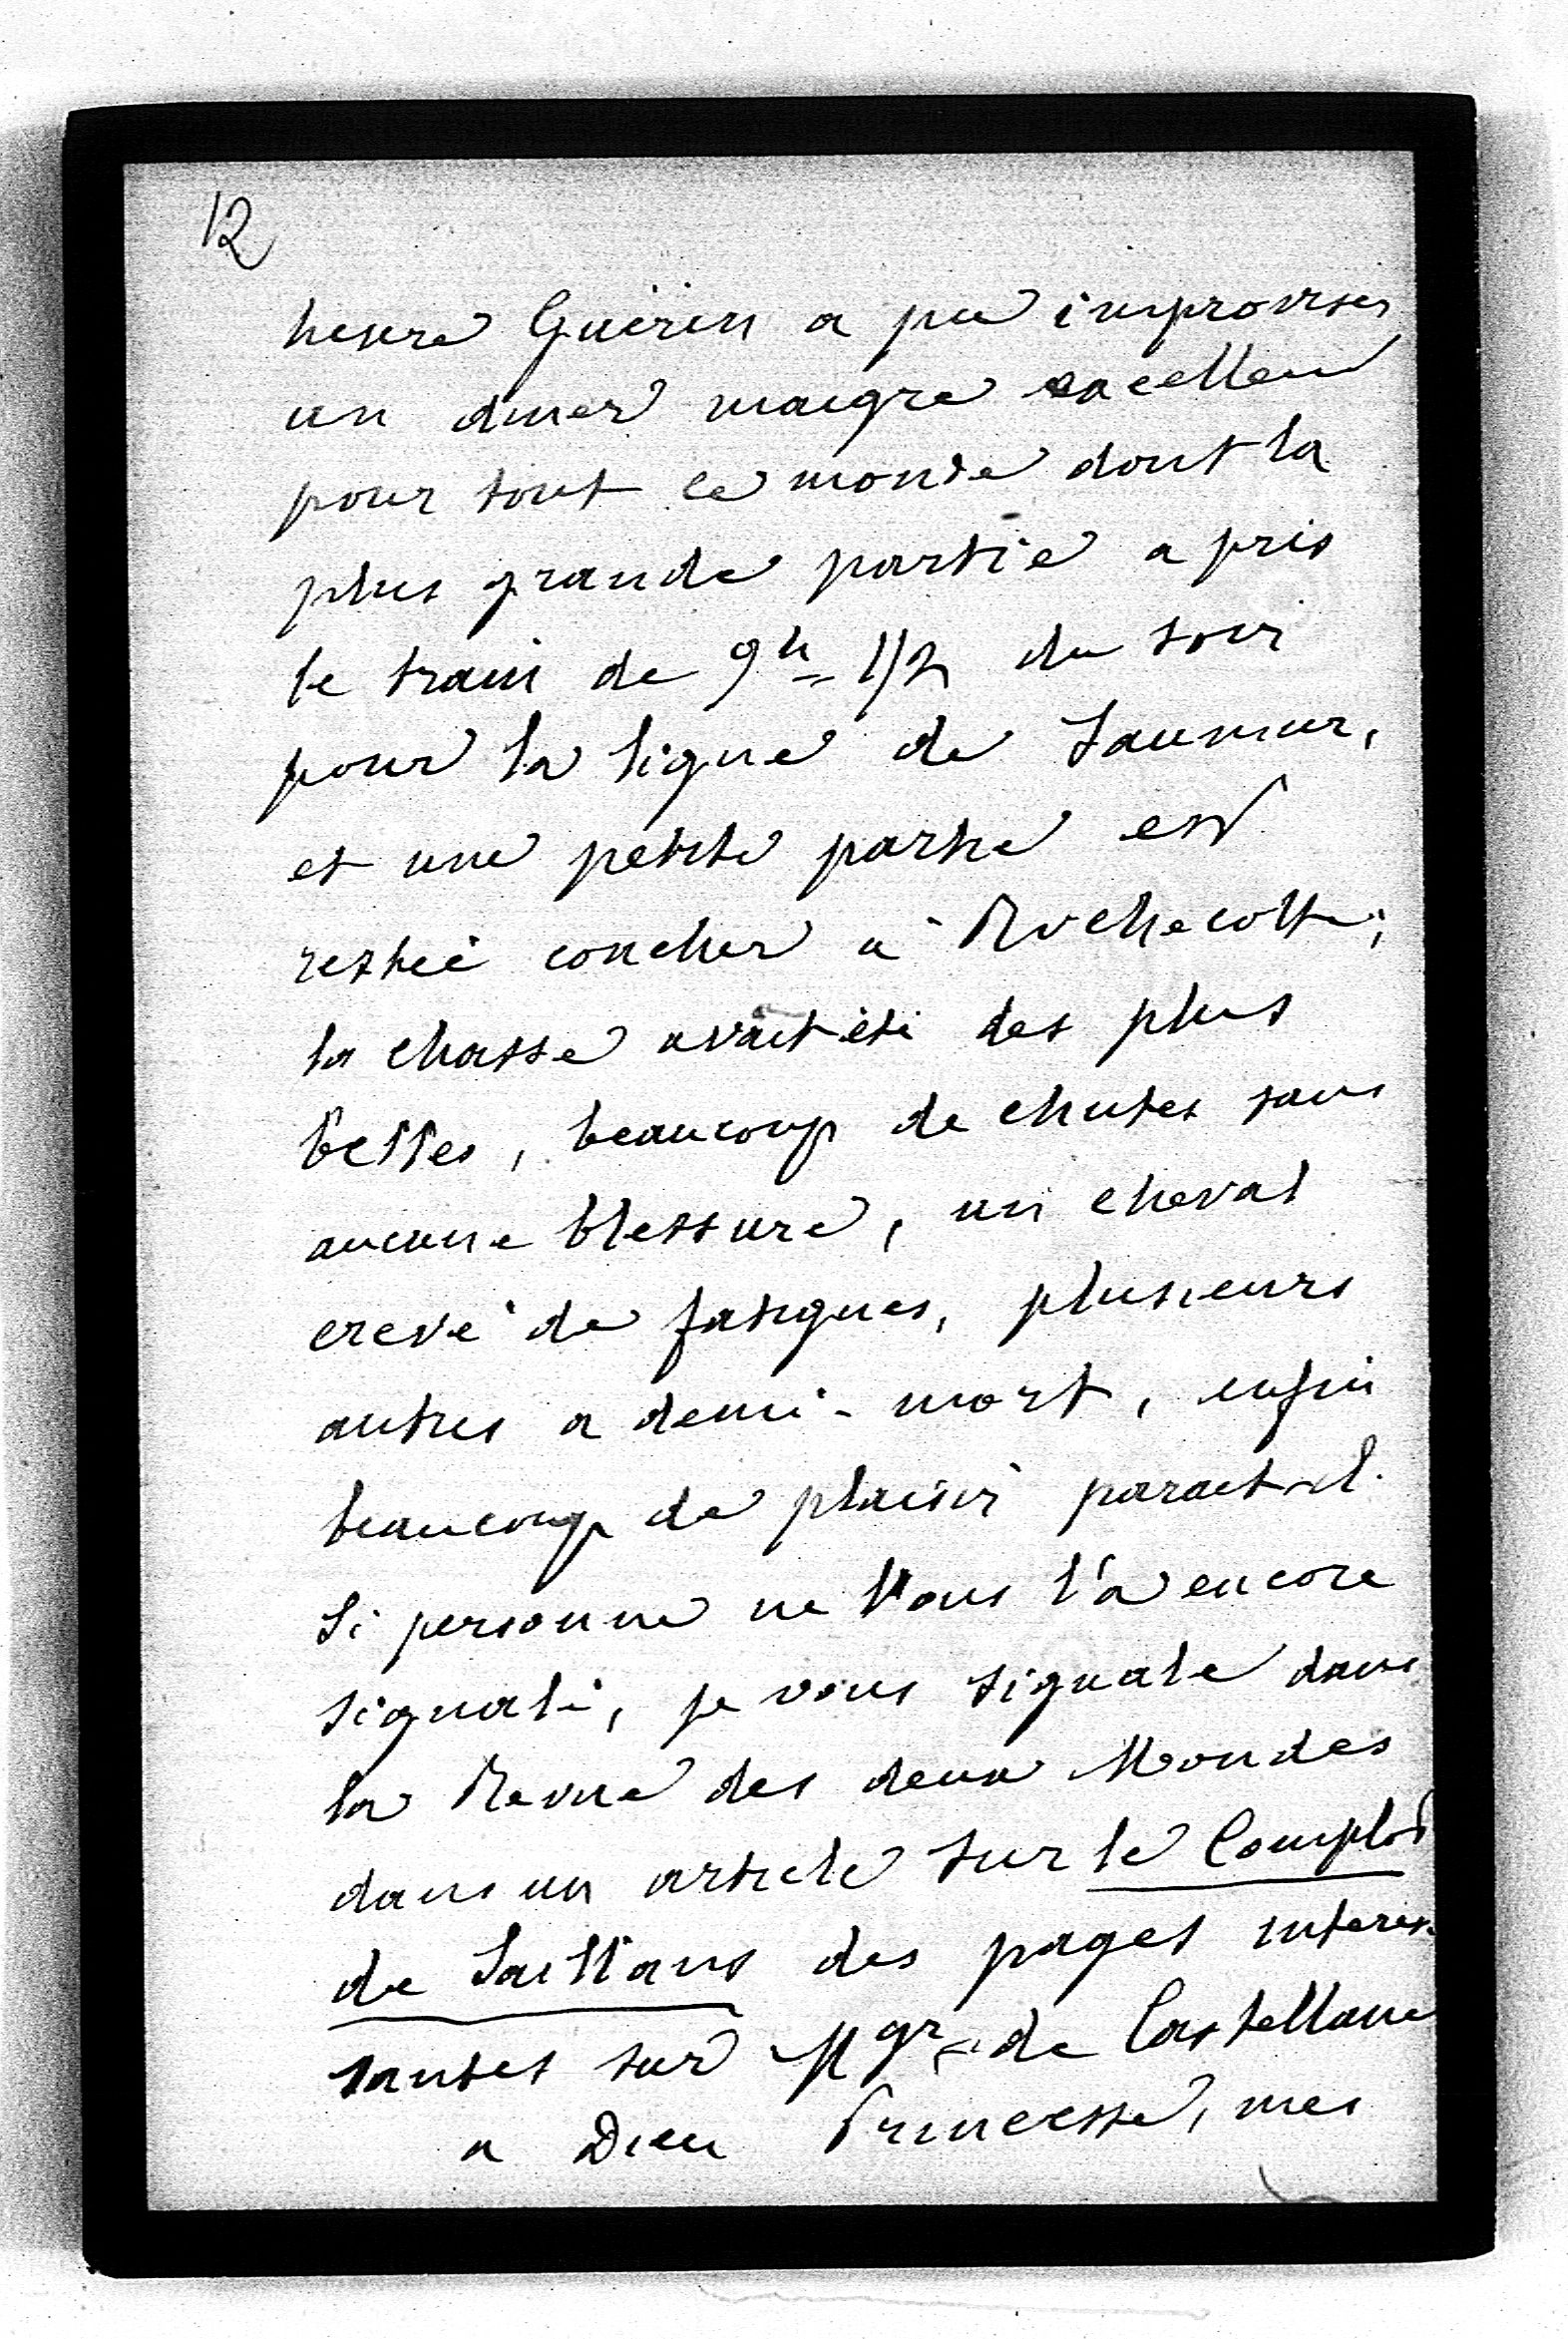 12
heure Guérin a pu improviser
un diner maigre excellent
pour tout ce monde dont la
plus grande partie a pris
le train de 9h 1/2 du soir
pour la ligne de Saumur,
et une petite partie est
restée coucher à Rochecotte;
la chasse avait été des plus
belles, beaucoup de chutes sans
aucune blessure, un cheval
crevé de fatigues, plusieurs
autres a demi-mort, enfin
beaucoup de plaisir parait-il.
Si personne ne Vous l'a encore
signalé, je vous signale dans
la Revue des deux Mondes
dans un article sur le Complot
de Saillans des pages intéres-
santes sur Mgr de Castellane
a Dieu Princesse, mes